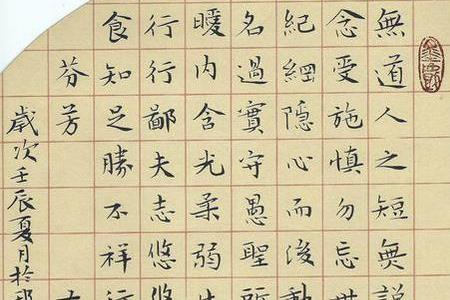 無道人之短無説
念受施慎勿忘世
紀綱隱心而後動
名過實守愚聖所
曖內含光柔弱生
行行鄙夫志悠悠
食知足勝不祥行
芬芳
歲次壬辰夏月於